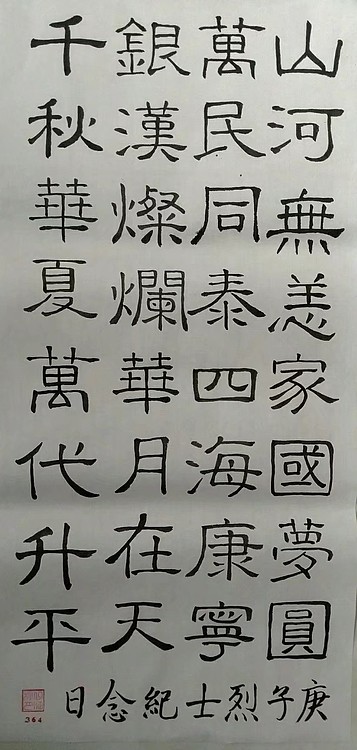 山河無恙家國夢圓
萬民同泰四海康寧
銀漢燦爛華月在天
千秋華夏萬代升平
庚子烈士紀念日
364